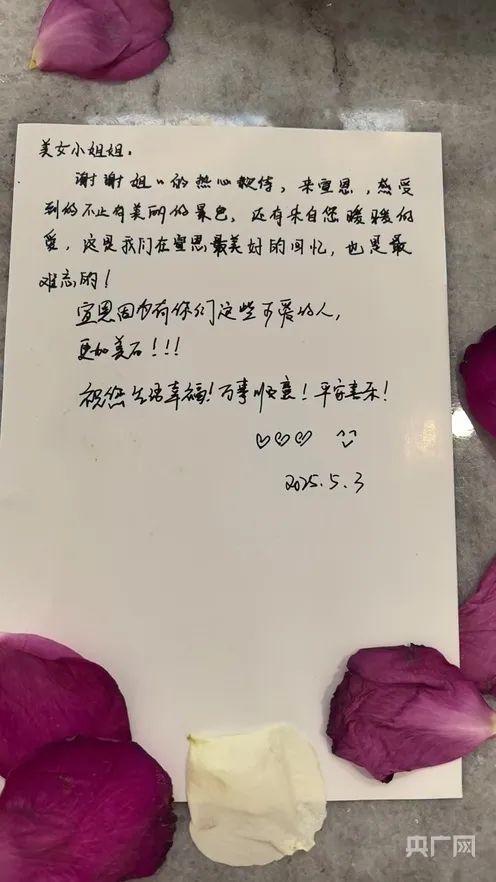 美女小姐姐.
谢谢姐"的热心款待，来宣恩，感受
到的不止有美丽的景色，还有来自您暖暖的
爱，这是我们在宣恩最美好的回忆，也是最
难忘的！
宣恩因为有你们这些可爱的人，
更加美石!!!
祝您生活幸福！万事顺意！平安喜乐！
♡♡♡ ^ᴗ^
2025.5.3
央广网